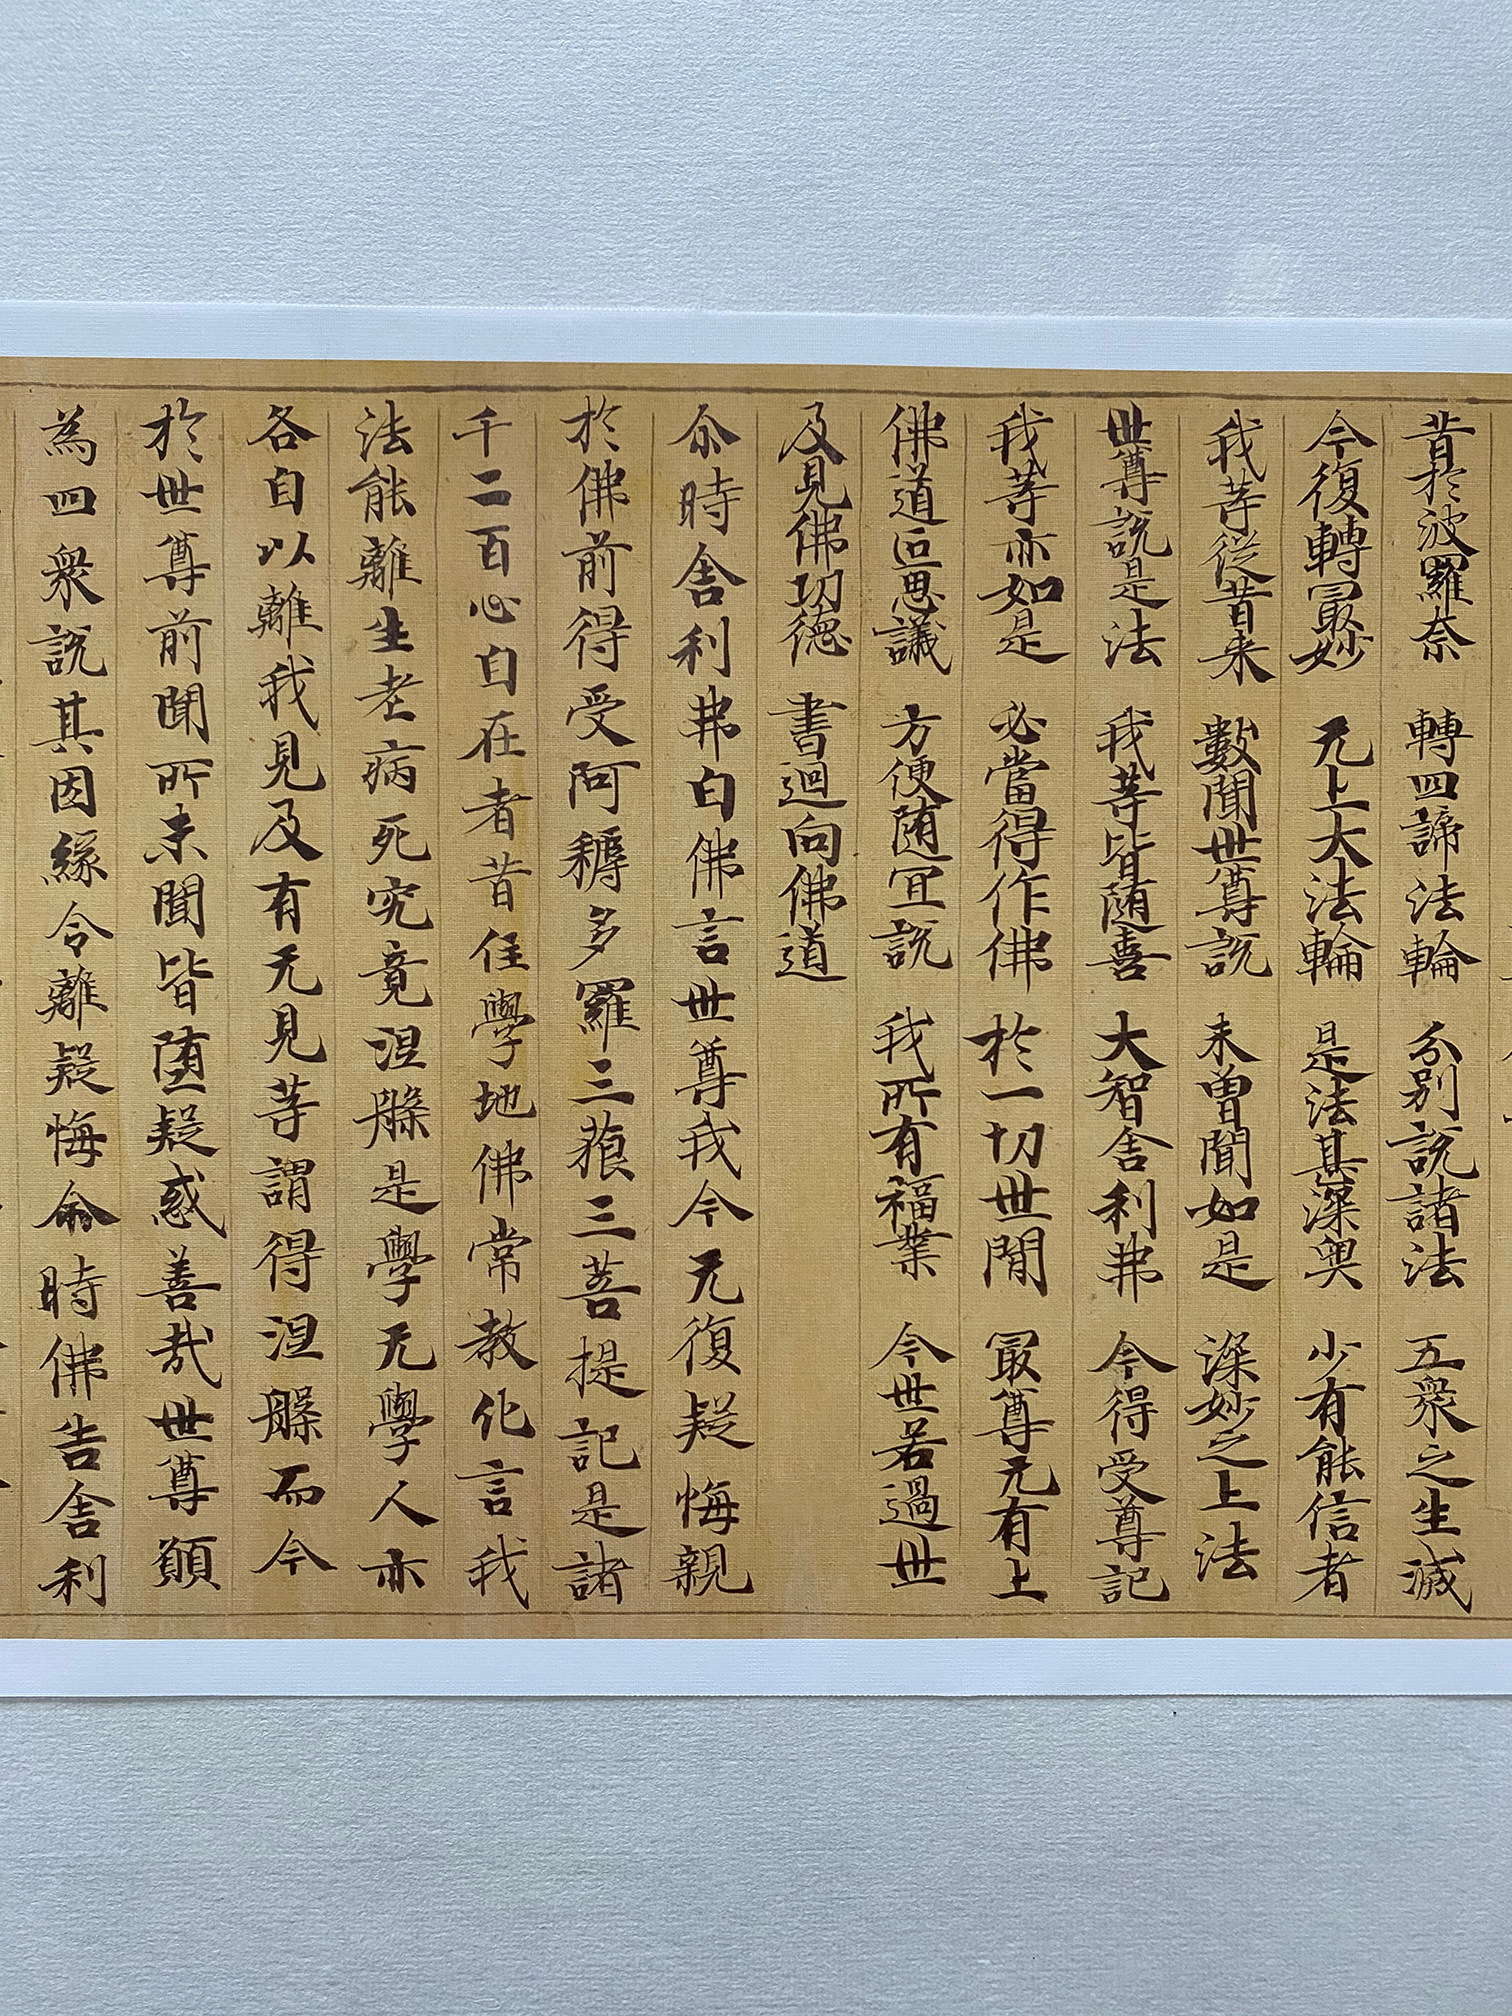 昔於波羅奈 轉四諦法輪 分別說諸法 五眾之生滅
今復轉冣妙 无上大法輪 是法甚深奥 少有能信者
我等從昔来 數聞世尊説 未曾聞如是 深妙之上法
世尊説是法 我等皆随喜 大智舍利弗 今得受尊記
我等亦如是 必當得作佛 於一切世間 冣尊无有上
佛道叵思議 方便随冝説 我所有福業 今世若過世
及見佛功德 盡迴向佛道
尒時舍利弗白佛言世尊我今无復疑悔親
於佛前得受阿耨多羅三藐三菩提記是諸
千二百心自在者昔住學地佛常教化言我
法能離生老病死究竟涅槃是學无學人亦
各自以離我見及有无見等謂得涅槃而今
於世尊前聞所未聞皆堕疑惑善哉世尊願
為四衆説其因緣令離疑悔尒時佛告舍利